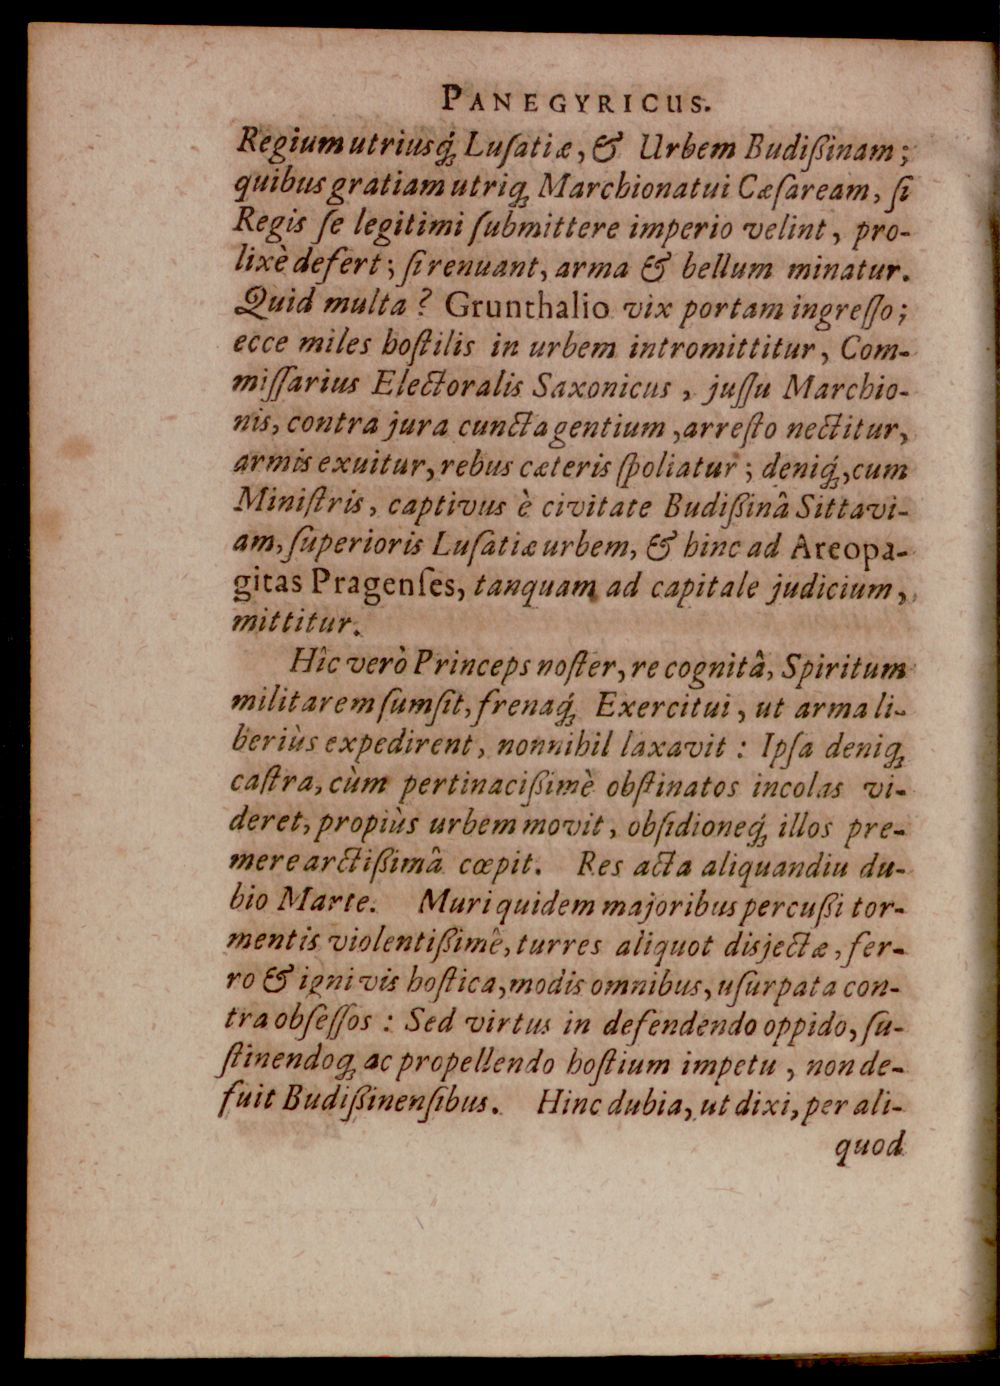 PANEGYRICUS.
Regium utriusq́; Luſatiæ, & Urbem Budißinam;
quibus gratiam utriq; Marchionatui Cæſaream, ſi
Regis ſe legitimi ſubmittere imperio velint, pro-
lixè defert; ſi renuant, arma & bellum minatur.
Quid multa? Grunthalio vix portam ingreſſo;
ecce miles hoſtilis in urbem intromittitur, Com-
miſſarius Electoralis Saxonicus, juſſu Marchio-
nis, contra jura cuncta gentium, arreſto nectitur,
armis exuitur, rebus cæteris ſpoliatur; deniq́;, cum
Miniſtris, captivus è civitate Budißinâ Sittavi-
am, ſuperioris Luſatiæ urbem, & hinc ad Areopa-
gitas Pragenſes, tanquam ad capitale judicium,
mittitur.
Hîc verò Princeps noſter, re cognitâ, Spiritum
militarem ſumſit, frenaq́; Exercitui, ut arma li-
beriùs expedirent, nonnihil laxavit: Ipſa deniq;
caſtra, cùm pertinacißimè obſtinatos incolas vi-
deret, propiùs urbem movit, obſidioneq́; illos pre-
mere arctißimâ cœpit. Res acta aliquandiu du-
bio Marte. Muri quidem majoribus percußi tor-
mentis violentißimè, turres aliquot disjectæ, fer-
ro & igni vis hoſtica, modis omnibus, uſurpata con-
tra obſeſſos: Sed virtus in defendendo oppido, ſu-
ſtinendoq; ac propellendo hoſtium impetu, non de-
fuit Budißinenſibus. Hinc dubia, ut dixi, per ali-
quod